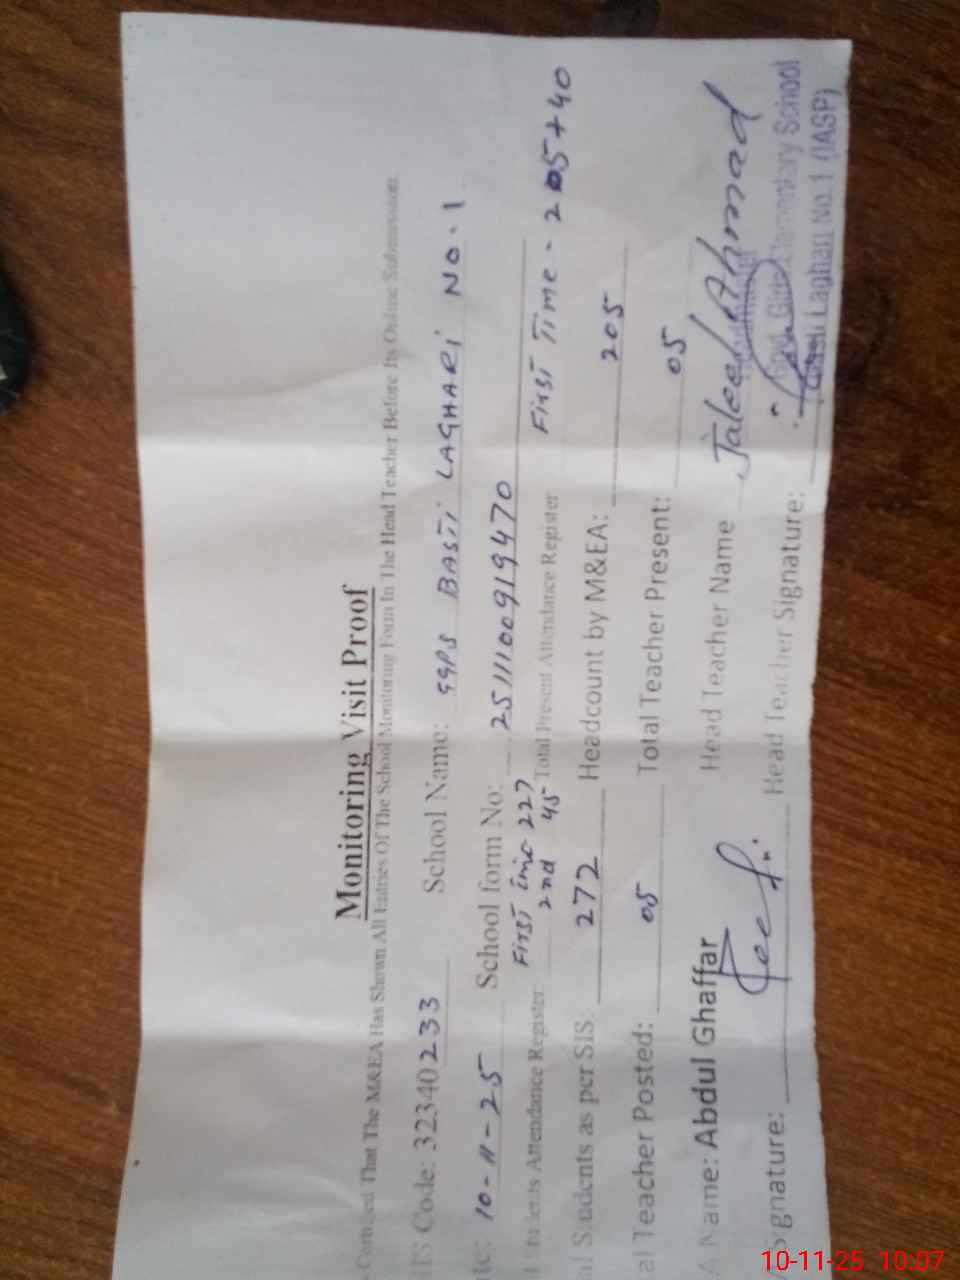 Monitoring Visit Proof
Certified That The M&EA Has Shown All Entries Of The School Monitoring Form To The Head Teacher Before Its Online Submission.
Code: 32340233 School Name: GGPS BASTI LAGHARI NO.1
10-11-25 School form No: 2511100919470
Students Attendance Register First time 227 Total Present Attendance Register First Time - 205+40
2nd 45
Students as per SIS: 272 Headcount by M&EA: 205
Teacher Posted: 05 Total Teacher Present: 05
Name: Abdul Ghaffar Head Teacher Name Jaleel Ahmad
Signature: Head Teacher Signature:
Govt. Girls Elementary School
Basti Laghari No.1 (IASP)
10-11-25 10:07